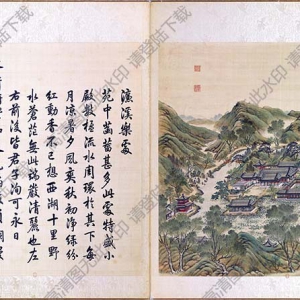 濂溪樂處
苑中菡萏甚多此處特盛小
殿數楹流水周環於其下每
月涼暑夕風爽秋初淨綠紛
紅動香不已想西湖十里野
水蒼茫無此端嚴清麗也左
右前後皆君子洵可永日
高清图无此水印 请登陆下载